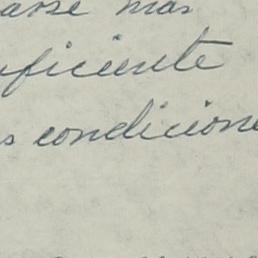 mas
ficiente
s condicione